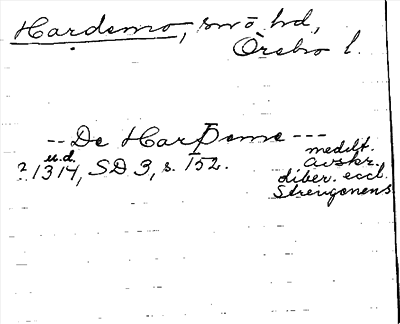 Hardemo, smö hd,
Örebro l.
-- De Harþeme ---
u.d.
? 1314, SD 3, s. 152.
medelt.
avskr.
diber. eccl.
Strengonens